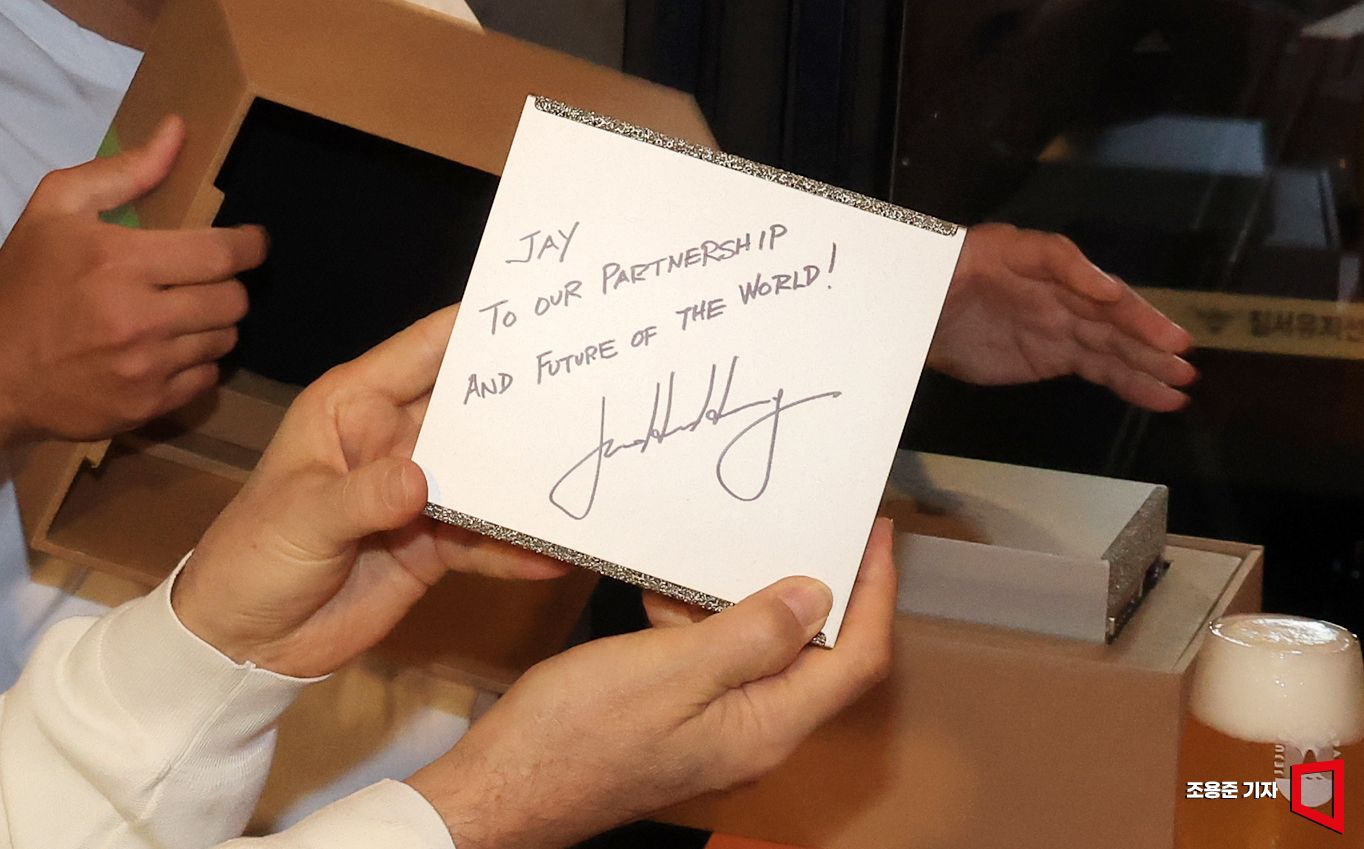 JAY
TO OUR PARTNERSHIP
AND FUTURE OF THE WORLD!
JEJU
조용준 기자